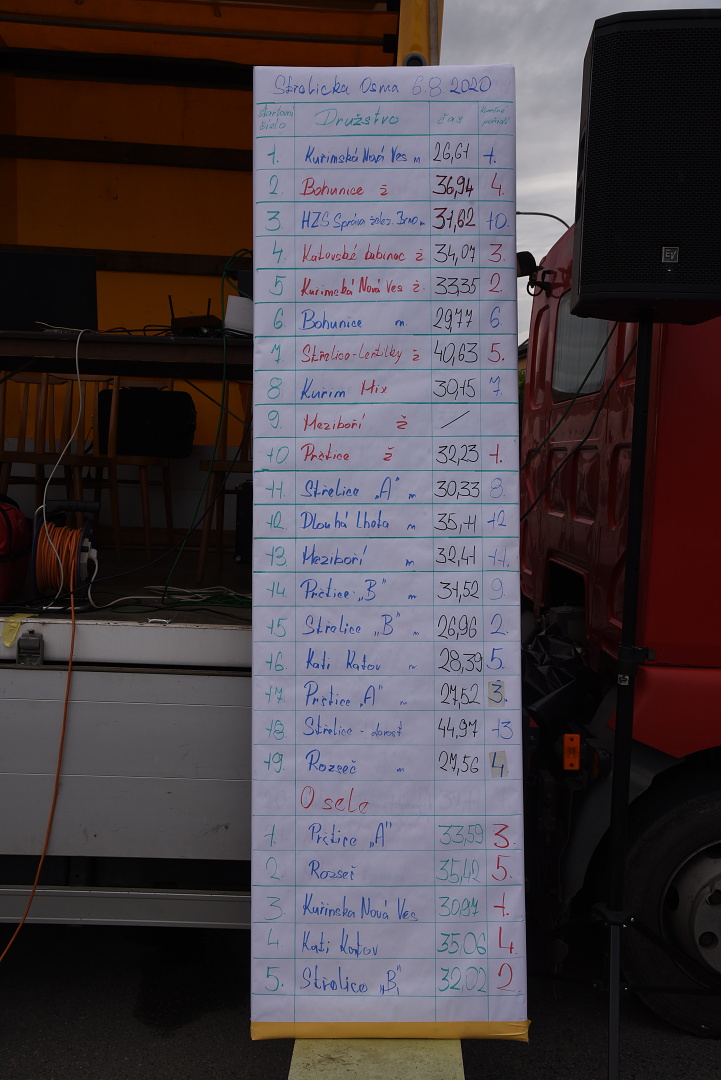 Střelická Osma 6.8.2020
Startovní číslo Družstvo čas konečné pořadí
1. Kuřimská Nová Ves m 26,61 1.
2. Bohunice ž 36,94 4.
3. HZS Správa želez. Brno m 31,62 10.
4. Katovské babinec ž 34,07 3.
5 Kuřimská Nová Ves ž 33,35 2.
6 Bohunice m 29,77 6.
7. Střelice-Lentilky ž 40,63 5.
8. Kuřim Mix 30,15 7.
9. Meziboří ž /
10 Prštice ž 32,23 1.
11. Střelice „A" m 30,33 8.
12. Dlouhá Lhota m 35,11 12
13. Meziboří m 32,41 11.
14 Prštice „B" m 31,52 9.
15 Střelice „B" m 26,96 2.
16. Kati Katov m 28,39 5.
17. Prštice „A" m 27,52 3.
18. Střelice - dorost 44,97 13
19. Rozseč m 27,56 4.
O sele
1. Prštice „A" 33,59 3.
2. Rozseč 35,42 5.
3. Kuřimska Nová Ves 30,97 1.
4. Kati Katov 35.06 4.
5. Střelice „B" 32,02 2
EV